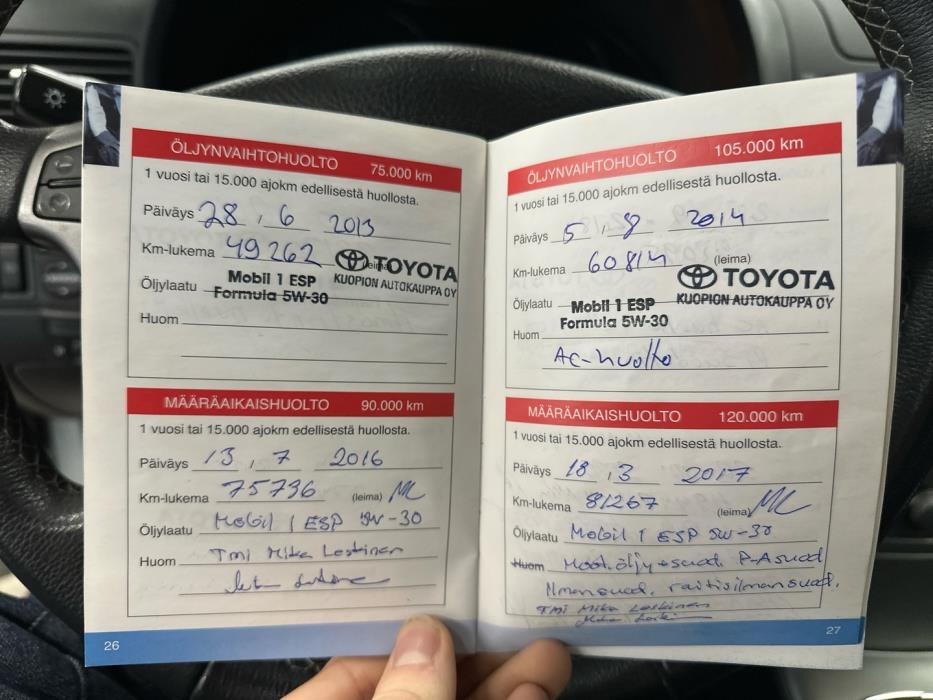 ÖLJYNVAIHTOHUOLTO 75.000 km
1 vuosi tai 15.000 ajokm edellisestä huollosta.
Päiväys 28 . 6 2013
Km-lukema 49262 (leima)
TOYOTA
KUOPION AUTOKAUPPA OY
Öljylaatu Mobil 1 ESP
Formula 5W-30
Huom
MÄÄRÄAIKAISHUOLTO 90.000 km
1 vuosi tai 15.000 ajokm edellisestä huollosta.
Päiväys 13 . 7 2016
Km-lukema 75736 (leima)
Öljylaatu Mobil 1 ESP 5W-30
Huom Tmi Mika Leskinen
26
ÖLJYNVAIHTOHUOLTO 105.000 km
1 vuosi tai 15.000 ajokm edellisestä huollosta.
Päiväys 5 . 8 2014
Km-lukema 60814 (leima)
TOYOTA
KUOPION AUTOKAUPPA OY
Öljylaatu Mobil 1 ESP
Formula 5W-30
Huom
AC-huolto
MÄÄRÄAIKAISHUOLTO 120.000 km
1 vuosi tai 15.000 ajokm edellisestä huollosta.
Päiväys 18 . 3 2017
Km-lukema 81267 (leima)
Öljylaatu Mobil 1 ESP 5W-30
Huom Moot.öljy+suod, P-A suod
Ilmansuod, raitisilmansuod.
Tmi Mika Leskinen
27